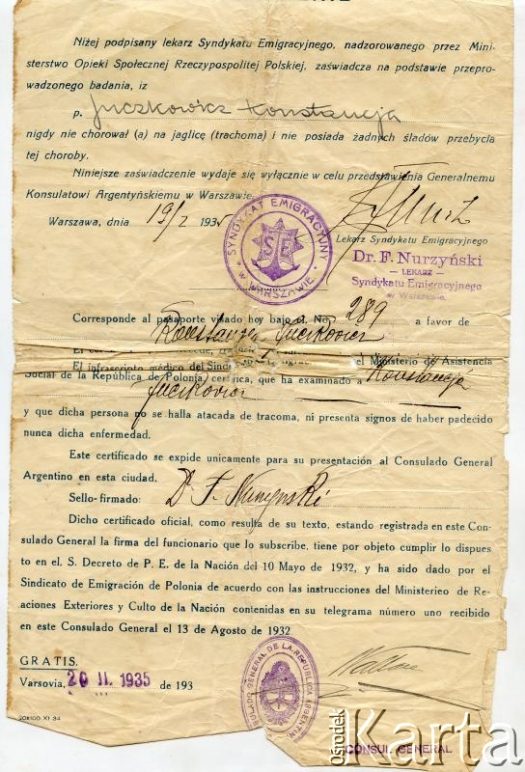 Niżej podpisany lekarz Syndykatu Emigracyjnego, nadzorowanego przez Mini-
sterstwo Opieki Społecznej Rzeczypospolitej Polskiej, zaświadcza na podstawie przepro-
wadzonego badania, iż
p. Juczkowicz Konstancja
nigdy nie chorował (a) na jaglicę (trachoma) i nie posiada żadnych śladów przebycia
tej choroby.
Niniejsze zaświadczenie wydaje się wyłącznie w celu przedstawienia Generalnemu
Konsulatowi Argentyńskiemu w Warszawie.
Warszawa, dnia 19/2 1935
SYNDYKAT EMIGRACYJNY
W WARSZAWIE
SE
Lekarz Syndykatu Emigracyjnego
Dr. F. Nurzyński
— LEKARZ —
Syndykatu Emigracyjnego
w Warszawie
Corresponde al pasaporte visado hoy bajo el No. 289 a favor de
El infrascripto médico del Sind el Ministerio de Asistencia
Social de la República de Polonia certifica, que ha examinado a Konstancja
y que dicha persona no se halla atacada de tracoma, ni presenta signos de haber padecido
nunca dicha enfermedad.
Este certificado se expide unicamente para su presentación al Consulado General
Argentino en esta ciudad.
Sello-firmado: Dr F. Nurzynski
Dicho certificado oficial, como resulta de su texto, estando registrada en este Con-
sulado General la firma del funcionario que lo subscribe, tiene por objeto cumplir lo dispues
to en el. S. Decreto de P. E. de la Nación del 10 Mayo de 1932, y ha sido dado por el
Sindicato de Emigración de Polonia de acuerdo con las instrucciones del Ministerieo de Re-
aciones Exteriores y Culto de la Nación contenidas en su telegrama número uno recibido
en este Consulado General el 13 de Agosto de 1932
GRATIS.
Varsovia, 20 II. 1935 de 193
CONSULADO GENERAL DE LA REPUBLICA ARGENTINA
CONSUL GENERAL
ośrodek
Karta